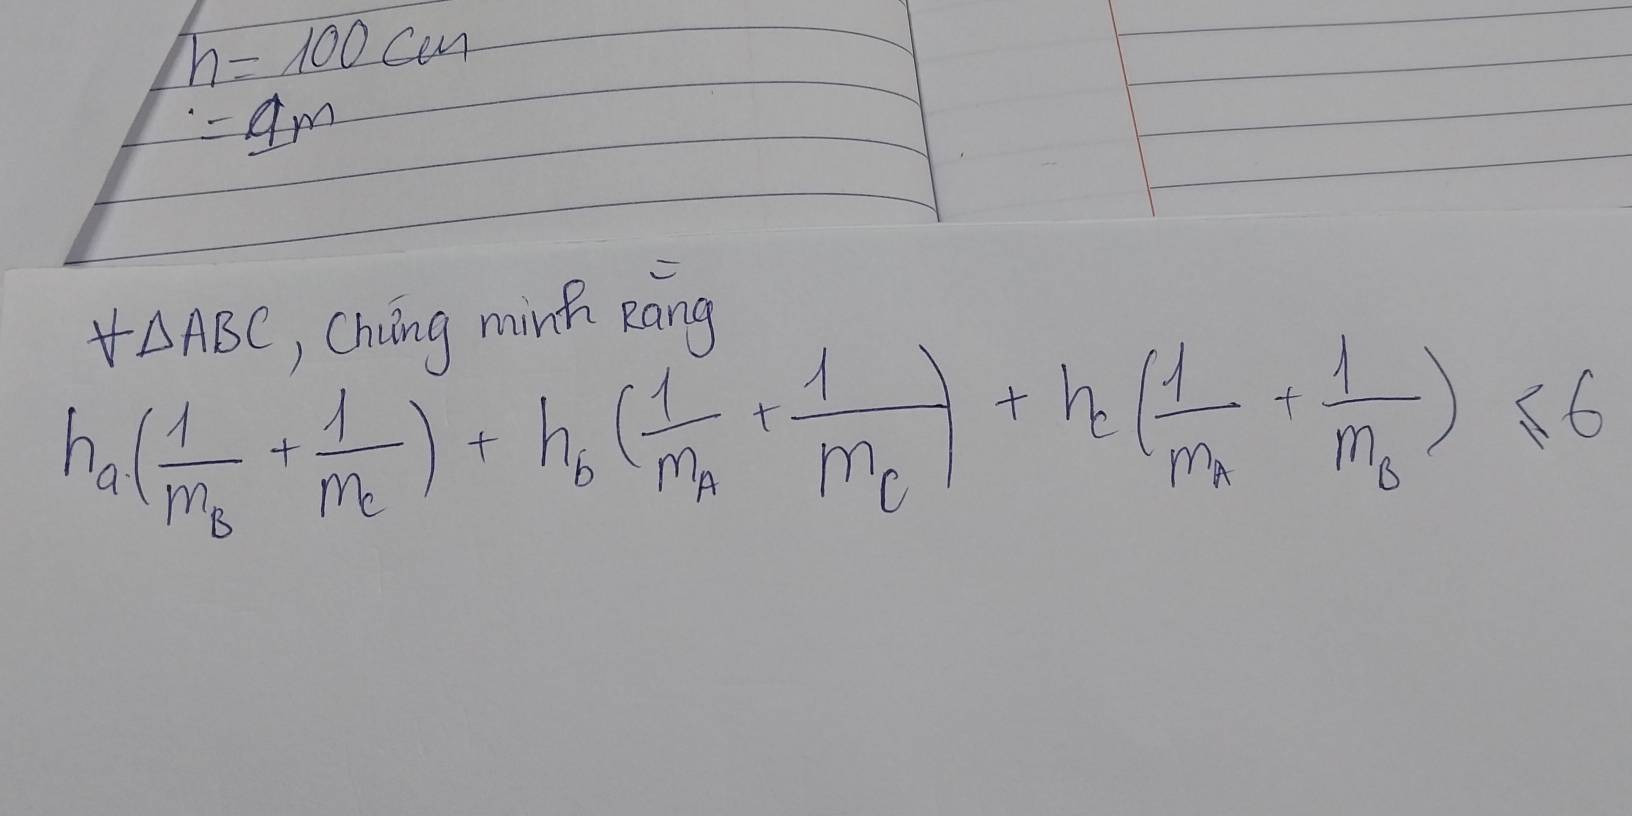 h = 100 cm
= 1m
∀ΔABC, chứng minh rằng
hₐ.(1/m_B + 1/m_C) + h_b (1/m_A + 1/m_C) + h_c (1/m_A + 1/m_B) ≤ 6